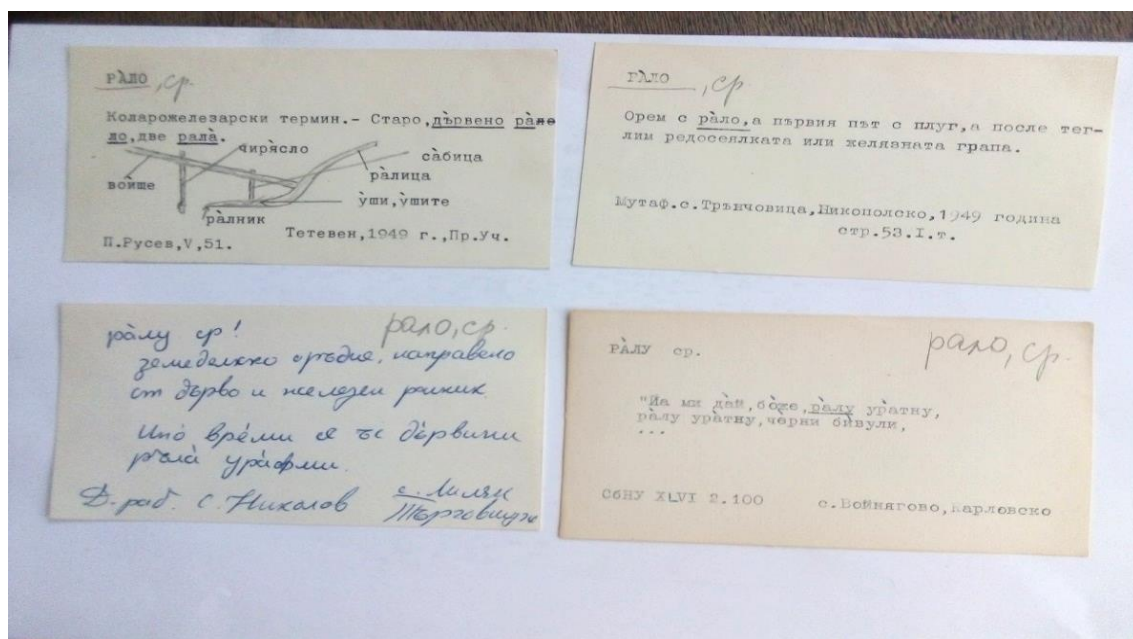 РА̀ЛО, ср.
Коларожелезарски термин.- Старо,дървено ра̀ле
ло,две рала̀.
чиря̀сло
са̀бица
во̀йше
ра̀лица
у̀ши,у̀шите
ра̀лник
Тетевен,1949 г.,Пр.Уч.
П.Русев,V,51.
РА̀ЛО, ср
Орем с ра̀ло,а първия път с плуг,а после тег-
лим редосеялката или желязната грапа.
Мутаф.с.Трънчовица,Никополско,1949 година
стр.53.I.т.
ра̀лу ср! рало, ср.
земеделско оръдие, направено
от дърво и железен ралник.
вре́ми дъ̀рвини
Д. раб. С. Николов с. Лиляк
Търговищко
РА̀ЛУ ср. рало, ср.
"Йа ми да̀й,бо̀же,ра̀лу ура̀тну,
ра̀лу ура̀тну,чѐрни бѝвули,
...
СбНУ XLVI 2.100 с.Войнягово,Карловско